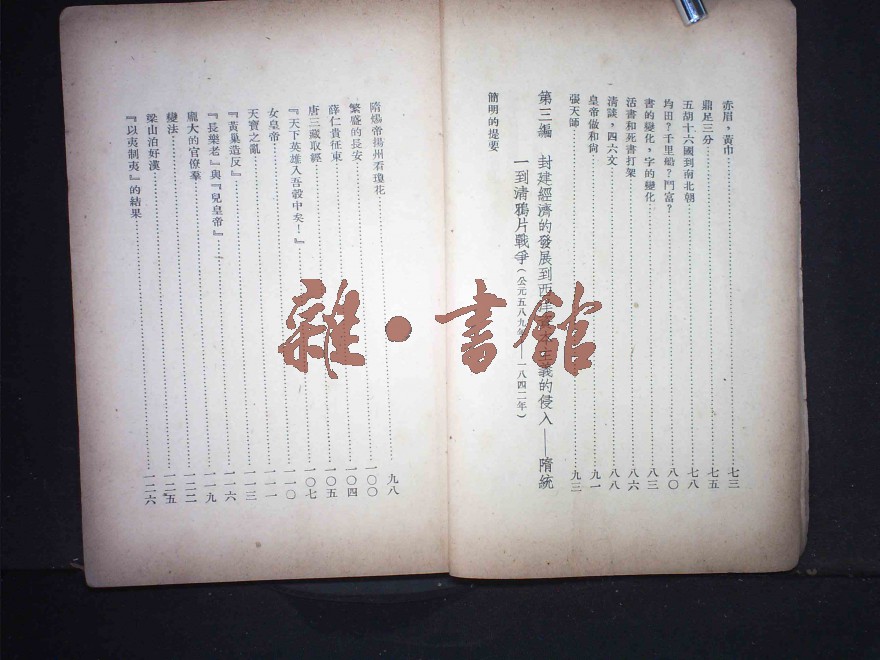 赤眉，黃巾……七三
鼎足三分……七五
五胡十六國到南北朝……七八
均田？千里船？鬥富？……八〇
書的變化，字的變化……八三
活書和死書打架……八六
清談，四六文……八八
皇帝做和尙……九一
張天師……九三
第三編 封建經濟的發展到西洋 義的侵入——隋統
一到清鴉片戰爭（公元五八九年——一八四二年）
簡明的提要……九八
隋煬帝揚州看瓊花……一〇〇
繁盛的長安……一〇四
薛仁貴征東……一〇五
唐三藏取經……一〇七
『天下英雄入吾彀中矣！』……一一〇
女皇帝……一一一
天寶之亂……一一三
『黃巢造反』……一一六
『長樂老』與『兒皇帝』……一一九
龐大的官僚羣……一二二
變法……一二五
梁山泊好漢……一二六
『以夷制夷』的結果
雜·書館